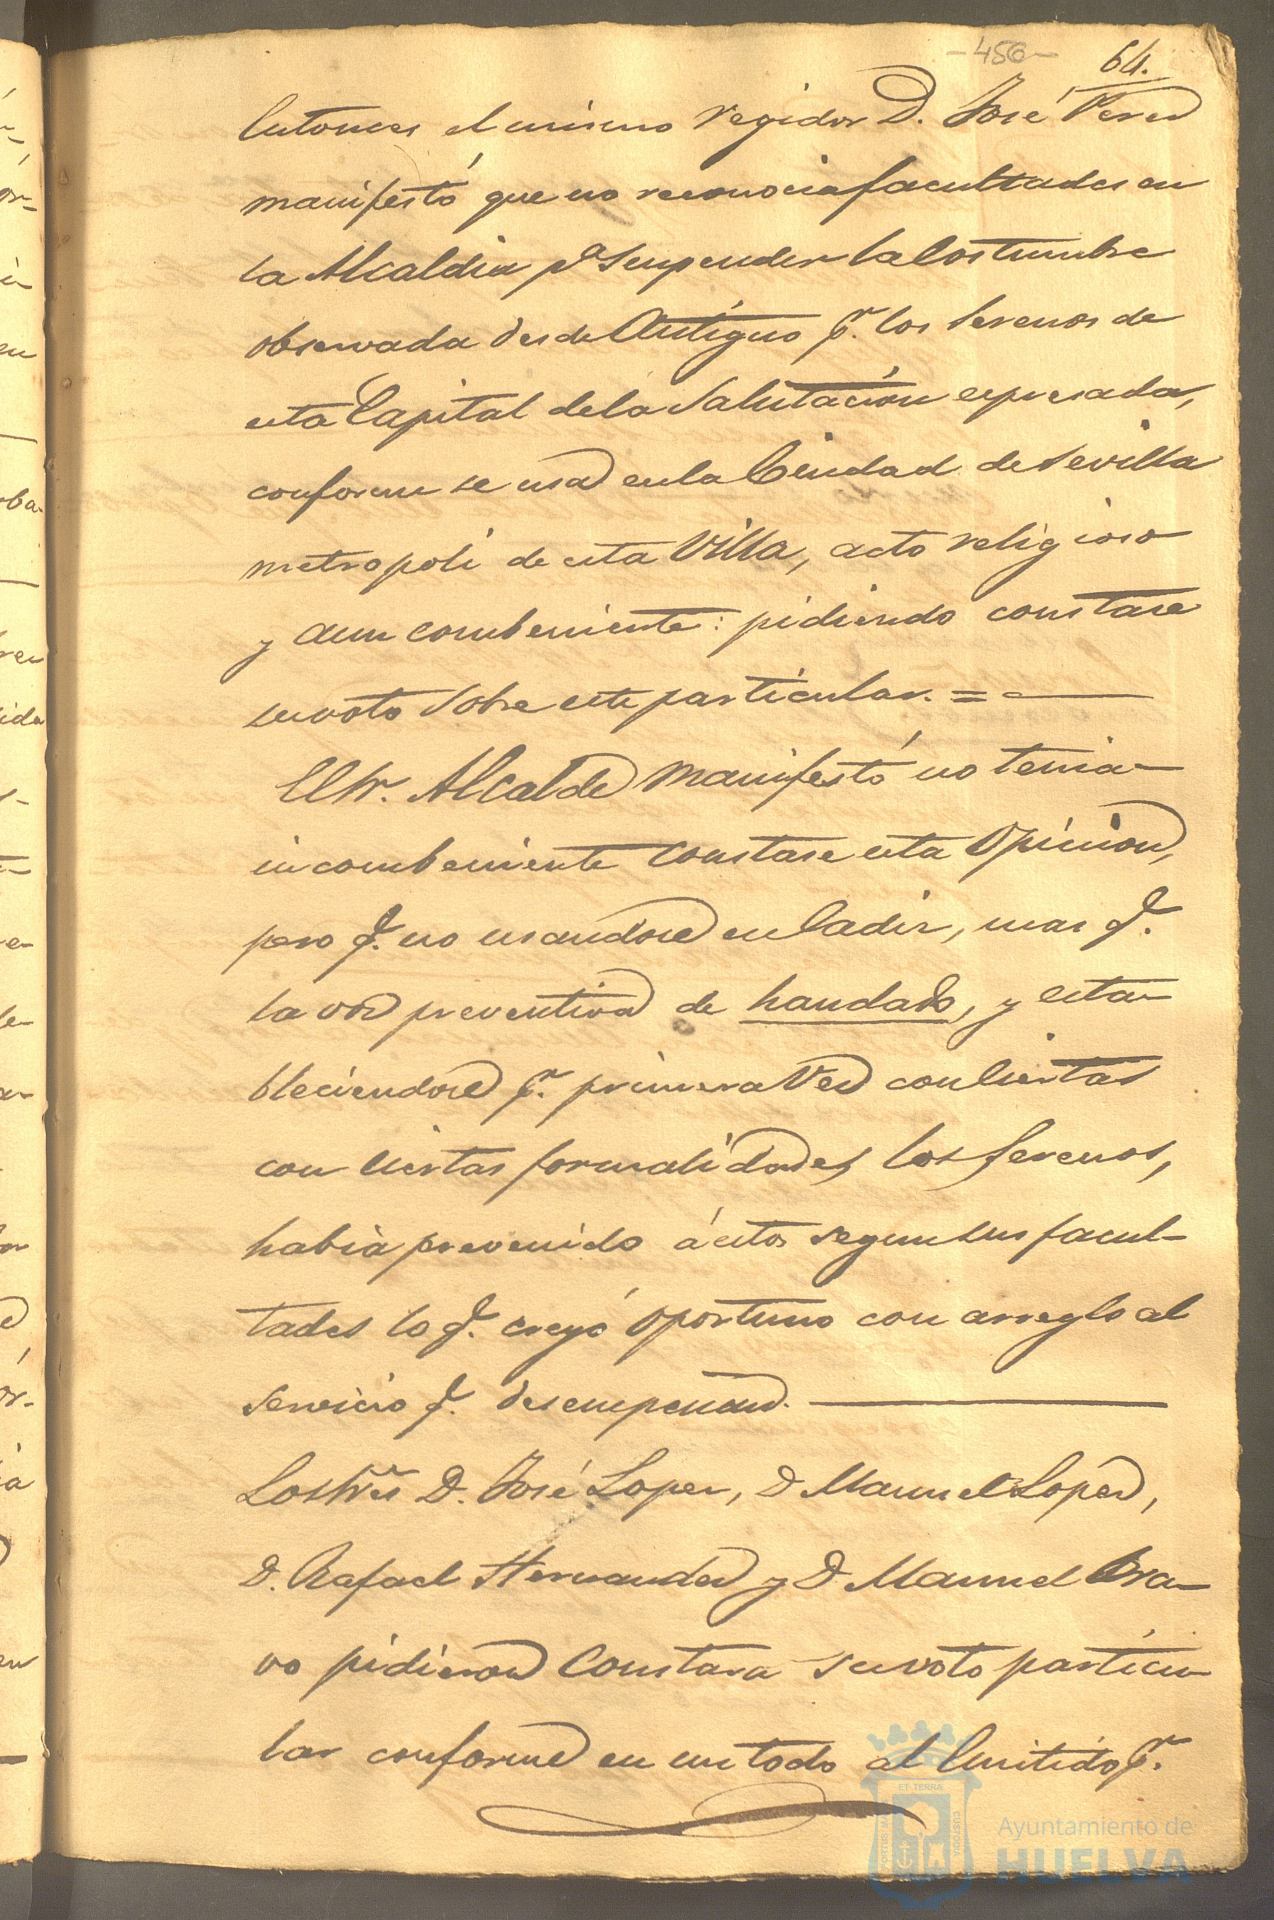 -456-
64.
Entonces el mismo regidor D. José Peres
manifestó que no reconocia facultades en
la Alcaldia pª suspender la Costumbre
observada desde Antiguo pr. los Serenos de
esta Capital de la Salutación espresada,
conforme se usa en la Ciudad de Sevilla
metropoli de esta Villa, acto religioso
y aun combeniente: pidiendo constase
su voto sobre este particular. =
El Sr. Alcalde manifestó no tenia
incombeniente constase esta Opinion,
pero q. no usandose en Cadiz, mas q.
la voz preventiva de handado, y esta-
bleciendose pr. primera Vez con ciertas
con ciertas formalidades los Serenos,
habia prevenido á estos segun sus facul-
tades lo q. creyó oportuno con arreglo al
servicio q. desempeñan.
Los Sres D. José Lopez, D Manuel Lopez,
D. Rafael Hernandez y D Manuel Bra-
vo pidieron Constara su voto particu-
lar conforme en un todo al Emitido pr.
ET TERRA
Ayuntamiento de
HUELVA